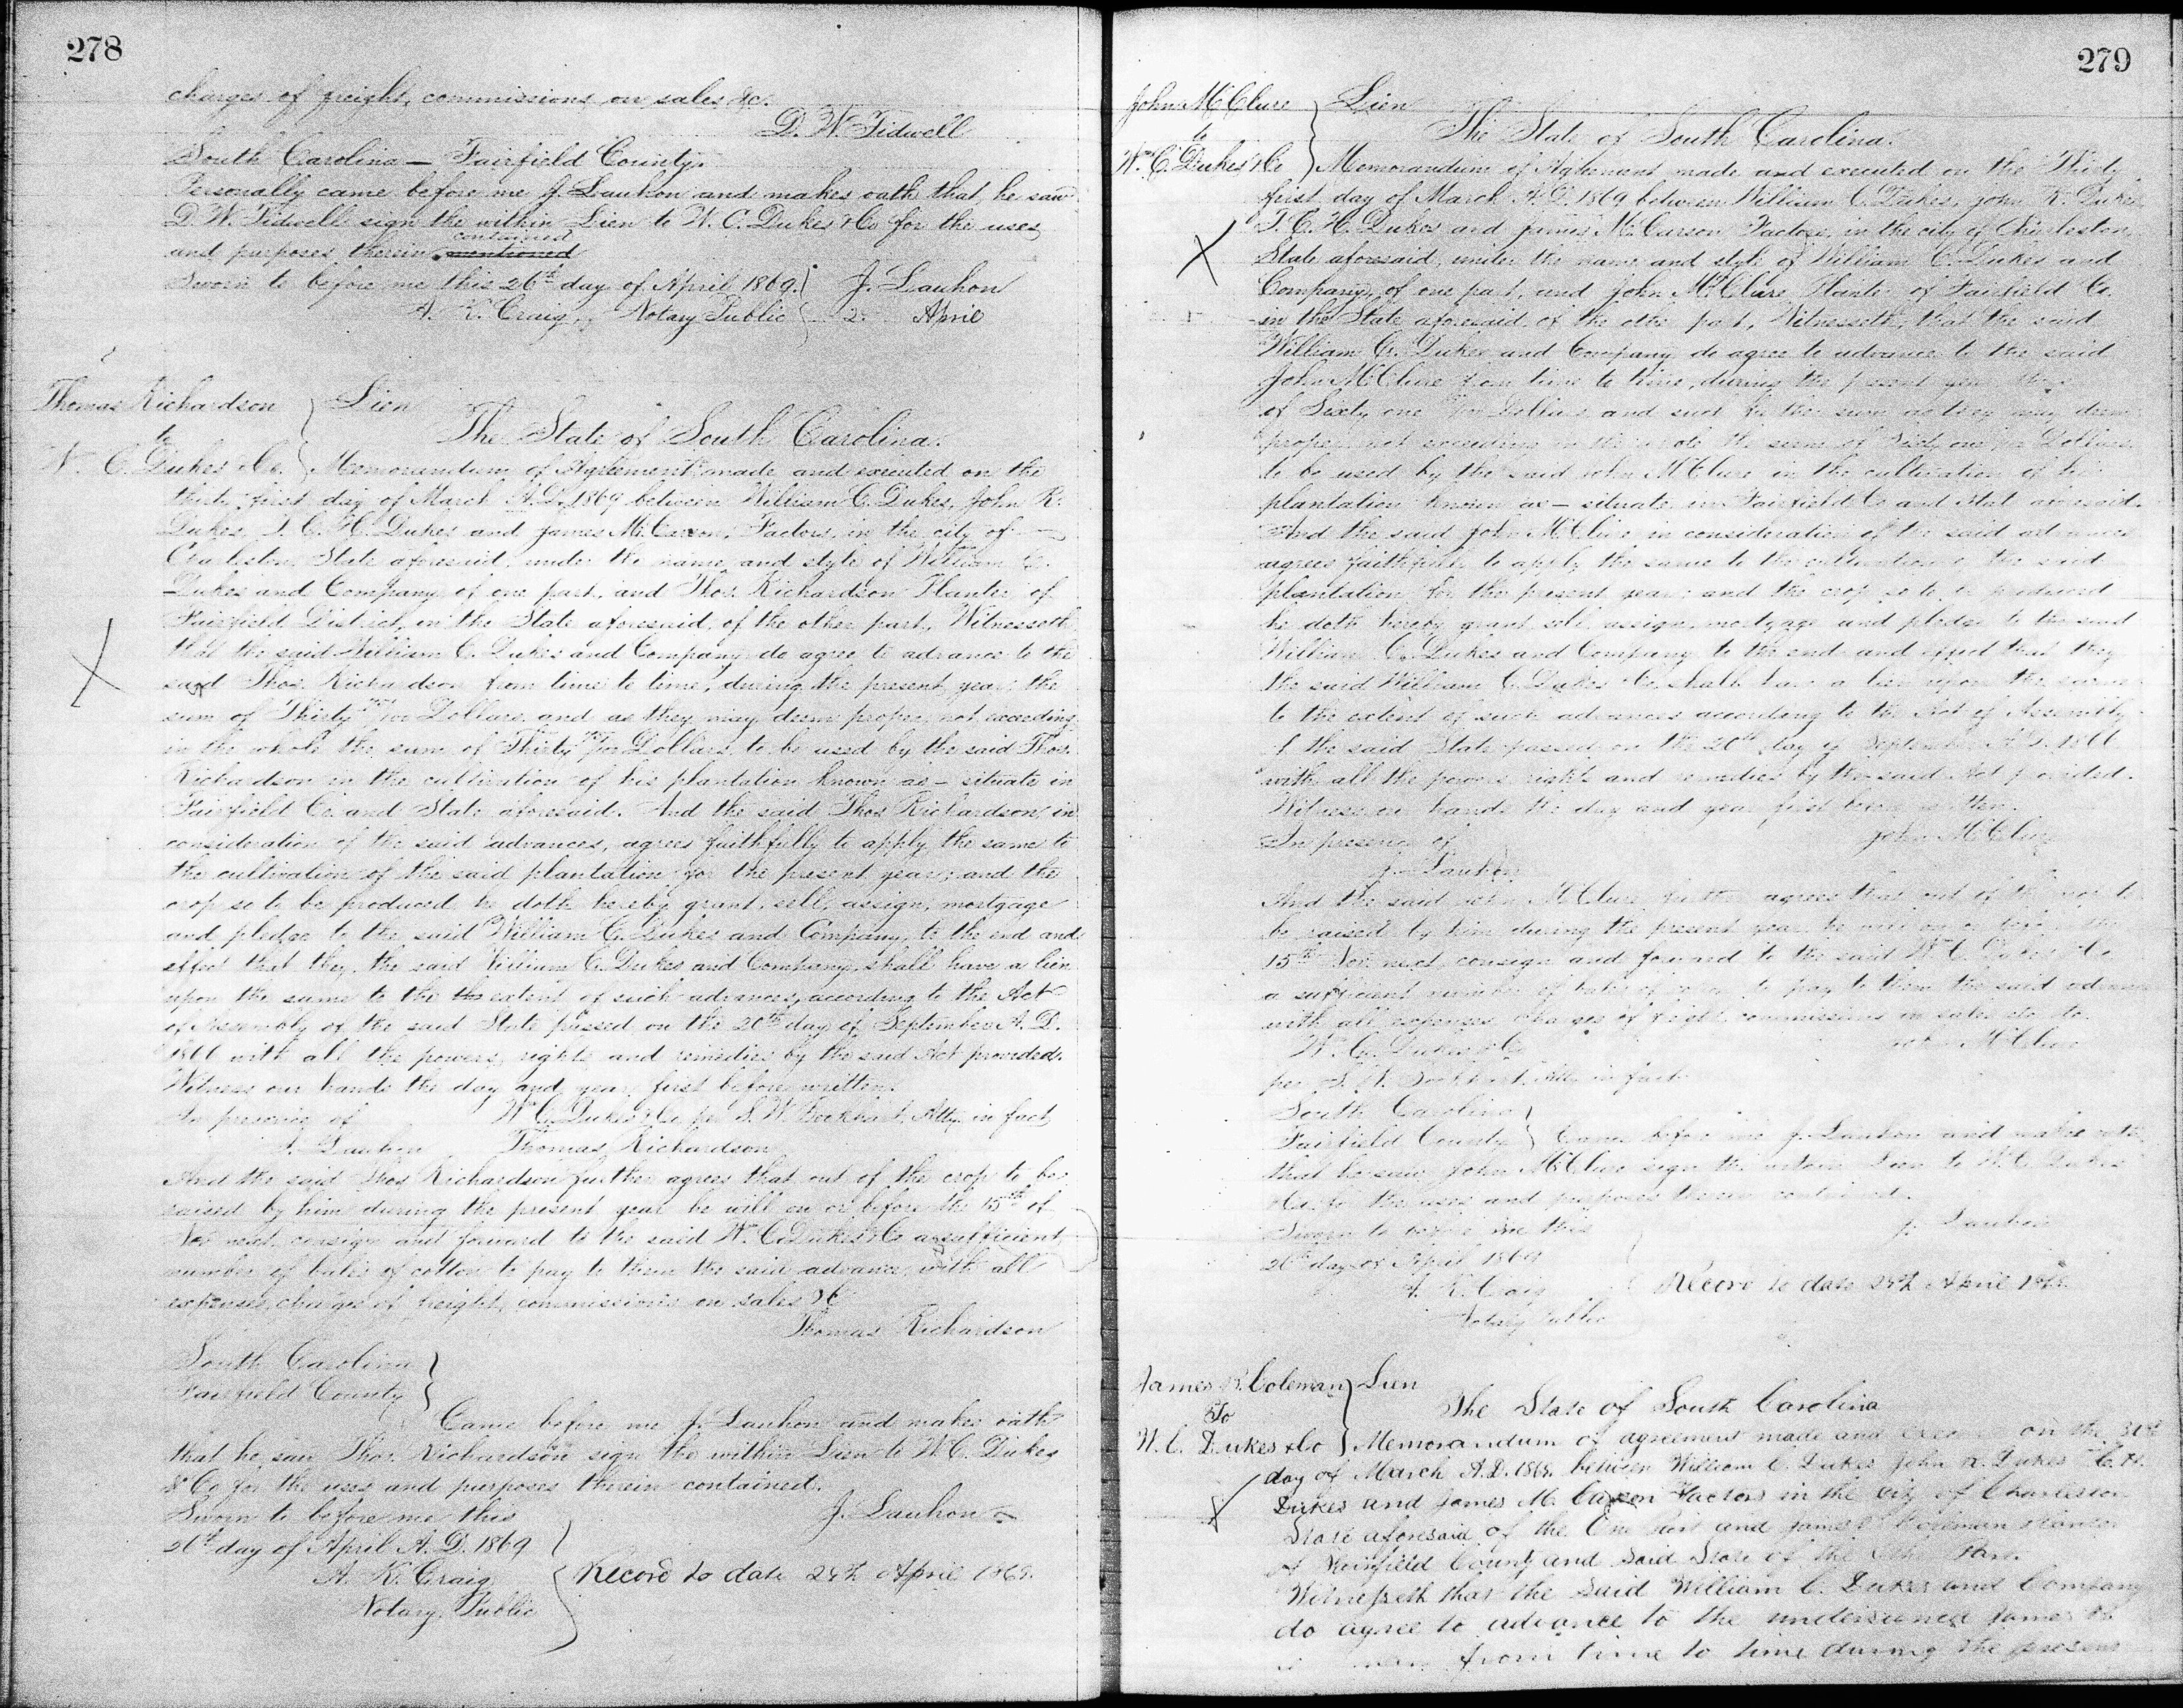 278
charges of freight, commissions on sales &c.
D. W. Tidwell
South Carolina — Fairfield County.
Personally came before me J. Lauhon and makes oath that, he saw
D. W. Tidwell sign the within Lien to W. C. Dukes & Co for the uses
and purposes therein mentioned contained
Sworn to before me this 26th day of April 1869. J. Lauhon
A. K. Craig, Notary Public April
Thomas Richardson Lien
to The State of South Carolina.
W. C. Dukes & Co. Memorandum of Agreement made and executed on the
thirty first day of March A.D. 1869 between William C. Dukes, John R.
Dukes, T. C. H. Dukes and James M. Carson, Factors, in the city of —
Charleston, State aforesaid, under the name and style of William C.
Dukes and Company of one part, and Thos. Richardson Planter of
Fairfield District, in the State aforesaid, of the other part, Witnesseth
that the said William C. Dukes and Company do agree to advance to the
said Thos. Richardson from time to time, during the present year, the
sum of Thirty /100 Dollars, and as they may deem proper, not exceeding
in the whole the sum of Thirty /100 Dollars, to be used by the said Thos.
Richardson in the cultivation of his plantation known as — situate in
Fairfield Co. and State aforesaid. And the said Thos Richardson, in
consideration of the said advances, agrees faithfully to apply the same to
the cultivation of the said plantation for the present year; and the
crop so to be produced he doth hereby grant, sell, assign, mortgage
and pledge to the said William C. Dukes and Company, to the end and
effect that they, the said William C. Dukes and Company, shall have a lien
upon the same to the the extent of such advances, according to the Act
of Assembly of the said State passed on the 20th day of September A. D.
1866 with all the powers, rights and remedies by the said Act provided.
Witness our hands the day and year first before written.
In presence of W. C. Dukes & Co per S. W. Bookhart, Atty. in fact
J. Lauhon Thomas Richardson
And the said Thos Richardson further agrees that out of the crop to be
raised by him during the present year he will on or before the 15th of
Nov next, consign and forward to the said W. C. Dukes & Co a sufficient
number of bales of cotton to pay to them the said advance, with all
expenses, charges of freight, commissions on sales &c
Thomas Richardson
South Carolina
Fairfield County
Came before me J. Lauhon and makes oath
that he saw Thos. Richardson sign the within Lien to W. C. Dukes
& Co for the uses and purposes therein contained.
Sworn to before me this J. Lauhon
26th day of April A. D. 1869
A. K. Craig Record to date 28th April 1869.
Notary Public
279
John McClure Lien
to The State of South Carolina.
Wm C. Dukes & Co Memorandum of Agreement made and executed on the Thirty
first day of March A. D. 1869 between William C. Dukes, John R. Dukes,
T. C. H. Dukes and James M. Carson Factors, in the city of Charleston,
State aforesaid, under the name and style of William C. Dukes and
Company, of one part, and John McClure Planter of Fairfield Co.
in the State aforesaid, of the other part, Witnesseth, that the said
William C. Dukes and Company do agree to advance to the said
John McClure from time to time, during the present year the
of Sixty one Dollars and such further sum as they may deem
proper not exceeding in the whole the sum of Sixty one Dollars
to be used by the said John McClure in the cultivation of his
plantation known as — situate in Fairfield Co and State aforesaid.
And the said John McClure in consideration of the said advances
agrees faithfully to apply the same to the cultivation of the said
plantation for the present year; and the crop so to be produced
he doth hereby grant, sell, assign, mortgage and pledge to the said
William C. Dukes and Company, to the end and effect that they
the said William C. Dukes & Co. shall have a lien upon the same
to the extent of such advances according to the Act of Assembly
of the said State passed on the 20th day of September A.D. 1866
with all the powers, rights and remedies by the said Act provided.
Witness our hands the day and year first before written.
In presence of John McClure
J. Lauhon
And the said John McClure further agrees that out of the crop to
be raised by him during the present year he will on or before the
15th Nov. next, consign and forward to the said W. C. Dukes & Co
a sufficient number of bales of cotton to pay to them the said advance
with all expenses charges of freight, commissions on sales
W. C. Dukes & Co John McClure
per S. W. Bookhart, Atty. in fact
South Carolina
Fairfield County Came before me J. Lauhon and makes oath
that he saw John McClure sign the within Lien to W. C. Dukes
& Co. for the uses and purposes therein contained.
Sworn to before me this J. Lauhon
26th day of April 1869
A. K. Craig Record to date 28th April 1869.
Notary Public
James R. Coleman Lien
To The State of South Carolina
W. C. Dukes & Co Memorandum of agreement made and on the 31st
day of March A.D. 1869 between William C. Dukes John R. Dukes T. C. H.
Dukes and James M. Carson Factors in the City of Charleston
State aforesaid of the One Part and James R Coleman Planter
of Fairfield County and Said State of the Other Part.
Witnesseth that the Said William C. Dukes and Company
do agree to advance to the undersigned James R.
from time to time during the present